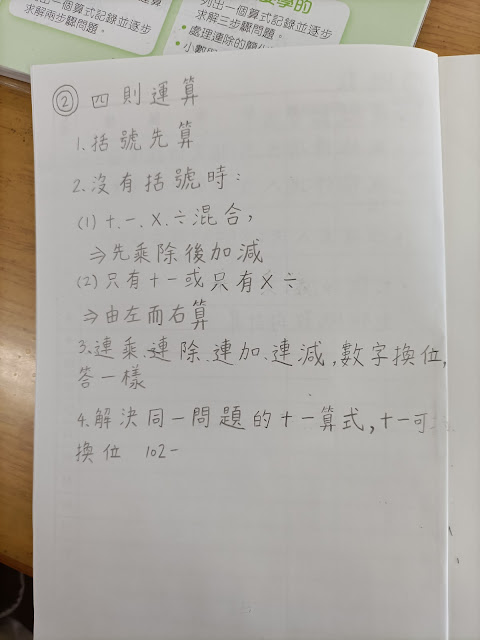 要學的
列出一個算式記錄並逐步
求解兩步驟問題。
列出一個算式記錄並逐步
求解三步驟問題。
•處理連除的
② 四則運算
1.括號先算
2.沒有括號時：
(1)＋.－.×.÷混合，
⇒先乘除後加減
(2)只有＋－或只有×÷
⇒由左而右算
3.連乘、連除、連加、連減，數字換位，
答一樣
4.解決同一問題的＋－算式，＋－可
換位 102－